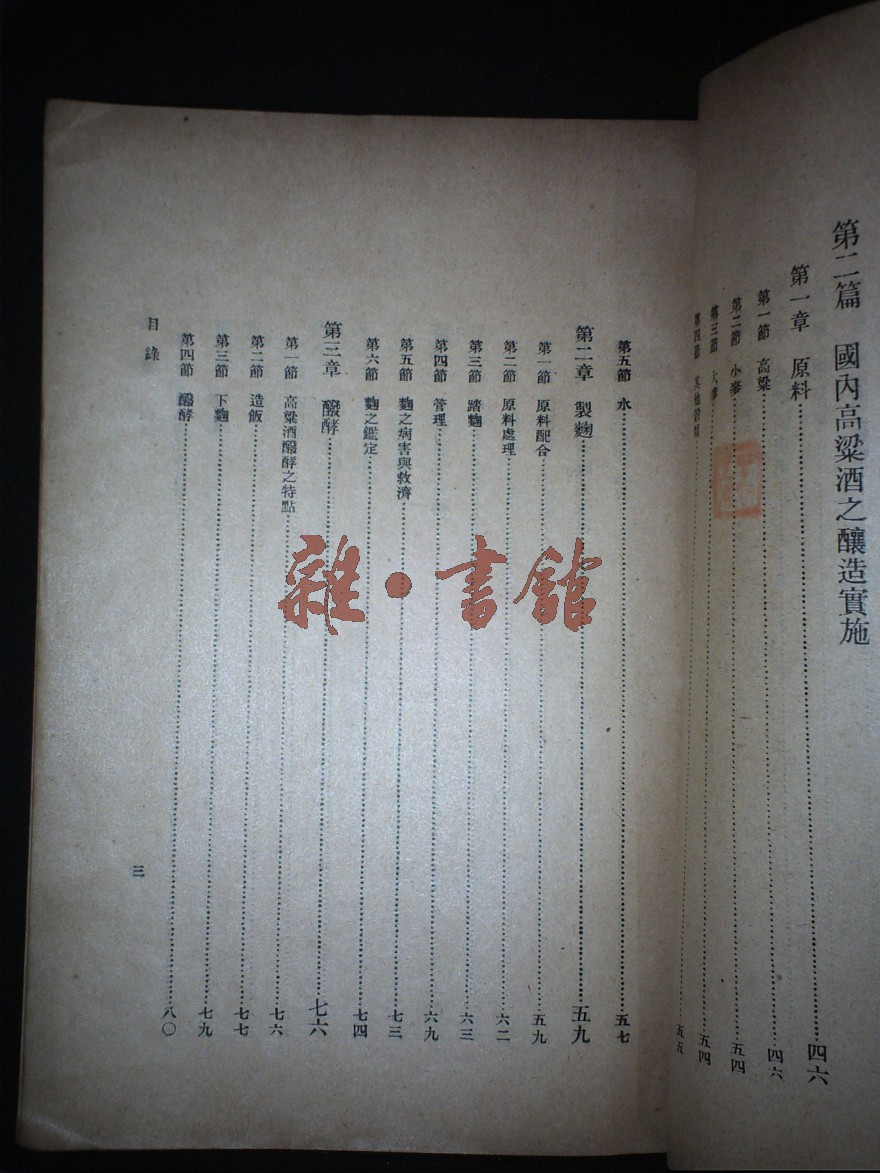 第二篇 國內高粱酒之釀造實施
第一章 原料……四六
第一節 高粱……四六
第二節 小麥……五四
第三節 大麥……五四
第四節 其他……五五
第五節 水……五七
第二章 製麴……五九
第一節 原料配合……五九
第二節 原料處理……六二
第三節 踏麴……六三
第四節 管理……六九
第五節 麴之病害與救濟……七三
第六節 麴之鑑定……七四
第三章 醱酵……七六
第一節 高粱酒醱酵之特點……七六
第二節 造飯……七七
第三節 下麴……七九
第四節 醱酵……八〇
目錄
三
雜·書館